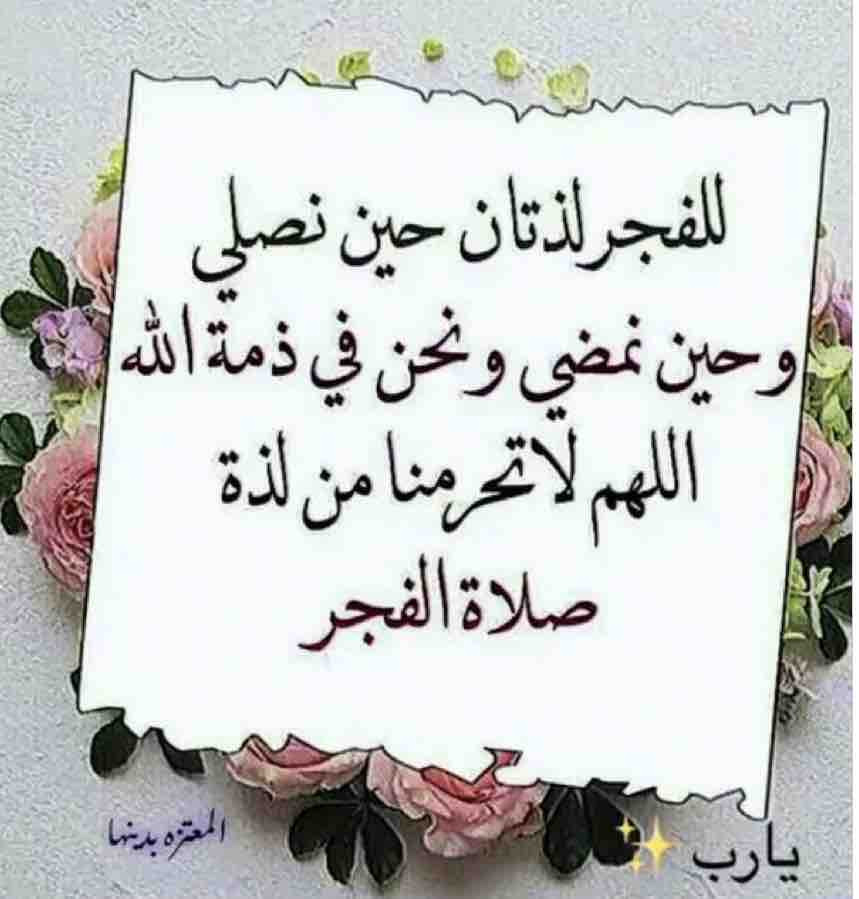 للفجر لذتان حين نصلي
وحين نمضي ونحن في ذمة الله
اللهم لا تحرمنا من لذة
صلاة الفجر
يارب ✨
المعتزه بدينها